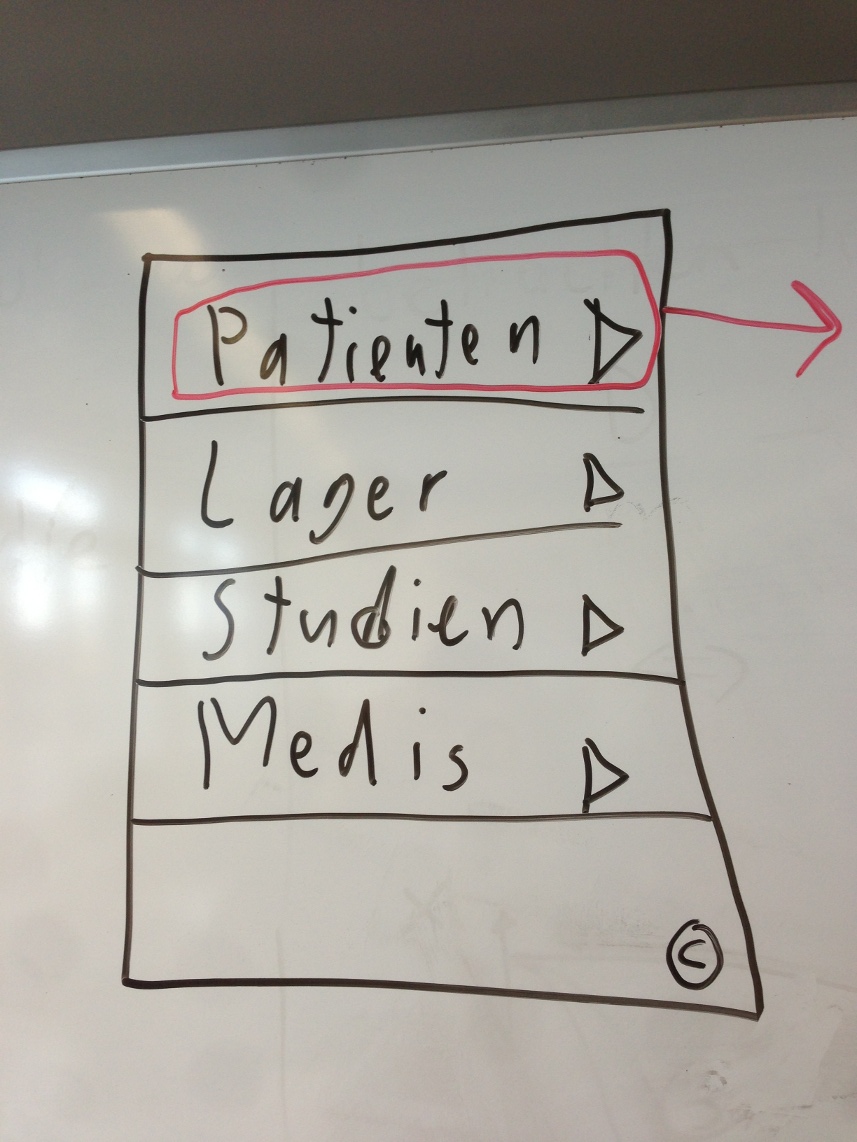 Patienten
Lager
Studien
Medis
©